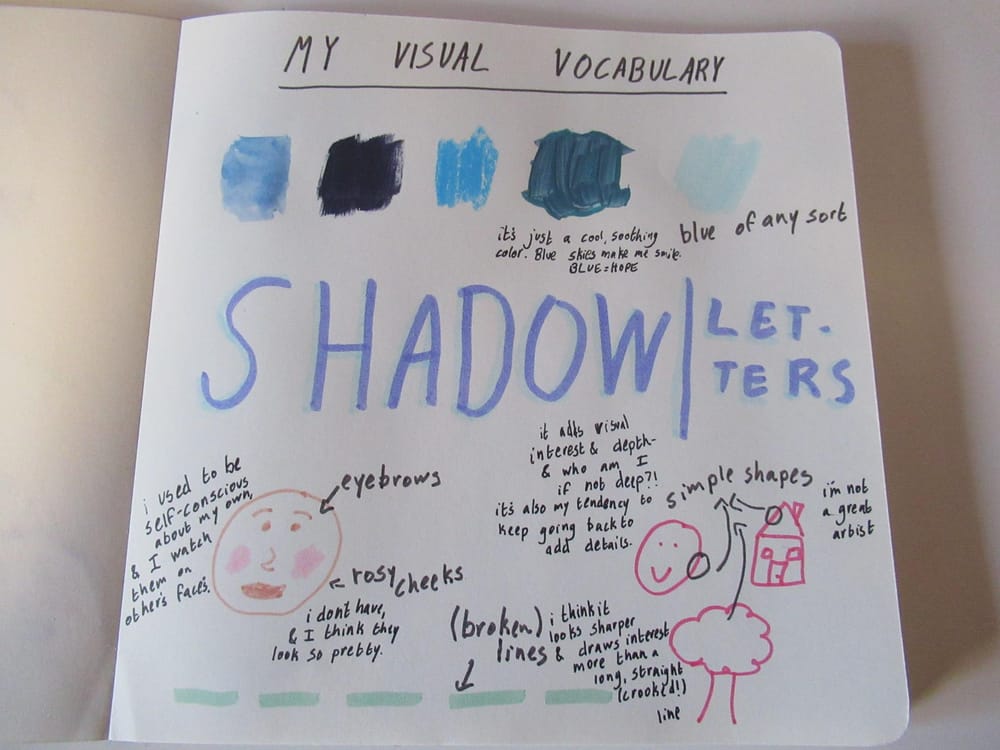 MY VISUAL VOCABULARY
it's just a cool, soothing
color. Blue skies make me smile.
BLUE=HOPE
blue of any sort
SHADOW|
LET-
TERS
it adds visual
interest & depth-
& who am I
if not deep?!
it's also my tendency to
keep going back to
add details.
i used to be
self-conscious
about my own,
& I watch
them on
other's faces.
eyebrows
rosy cheeks
i dont have,
& I think they
look so pretty.
simple shapes
i'm not
a great
artist
(broken)
lines
i think it
looks sharper
& draws interest
more than a
long, straight
(crooked!)
line